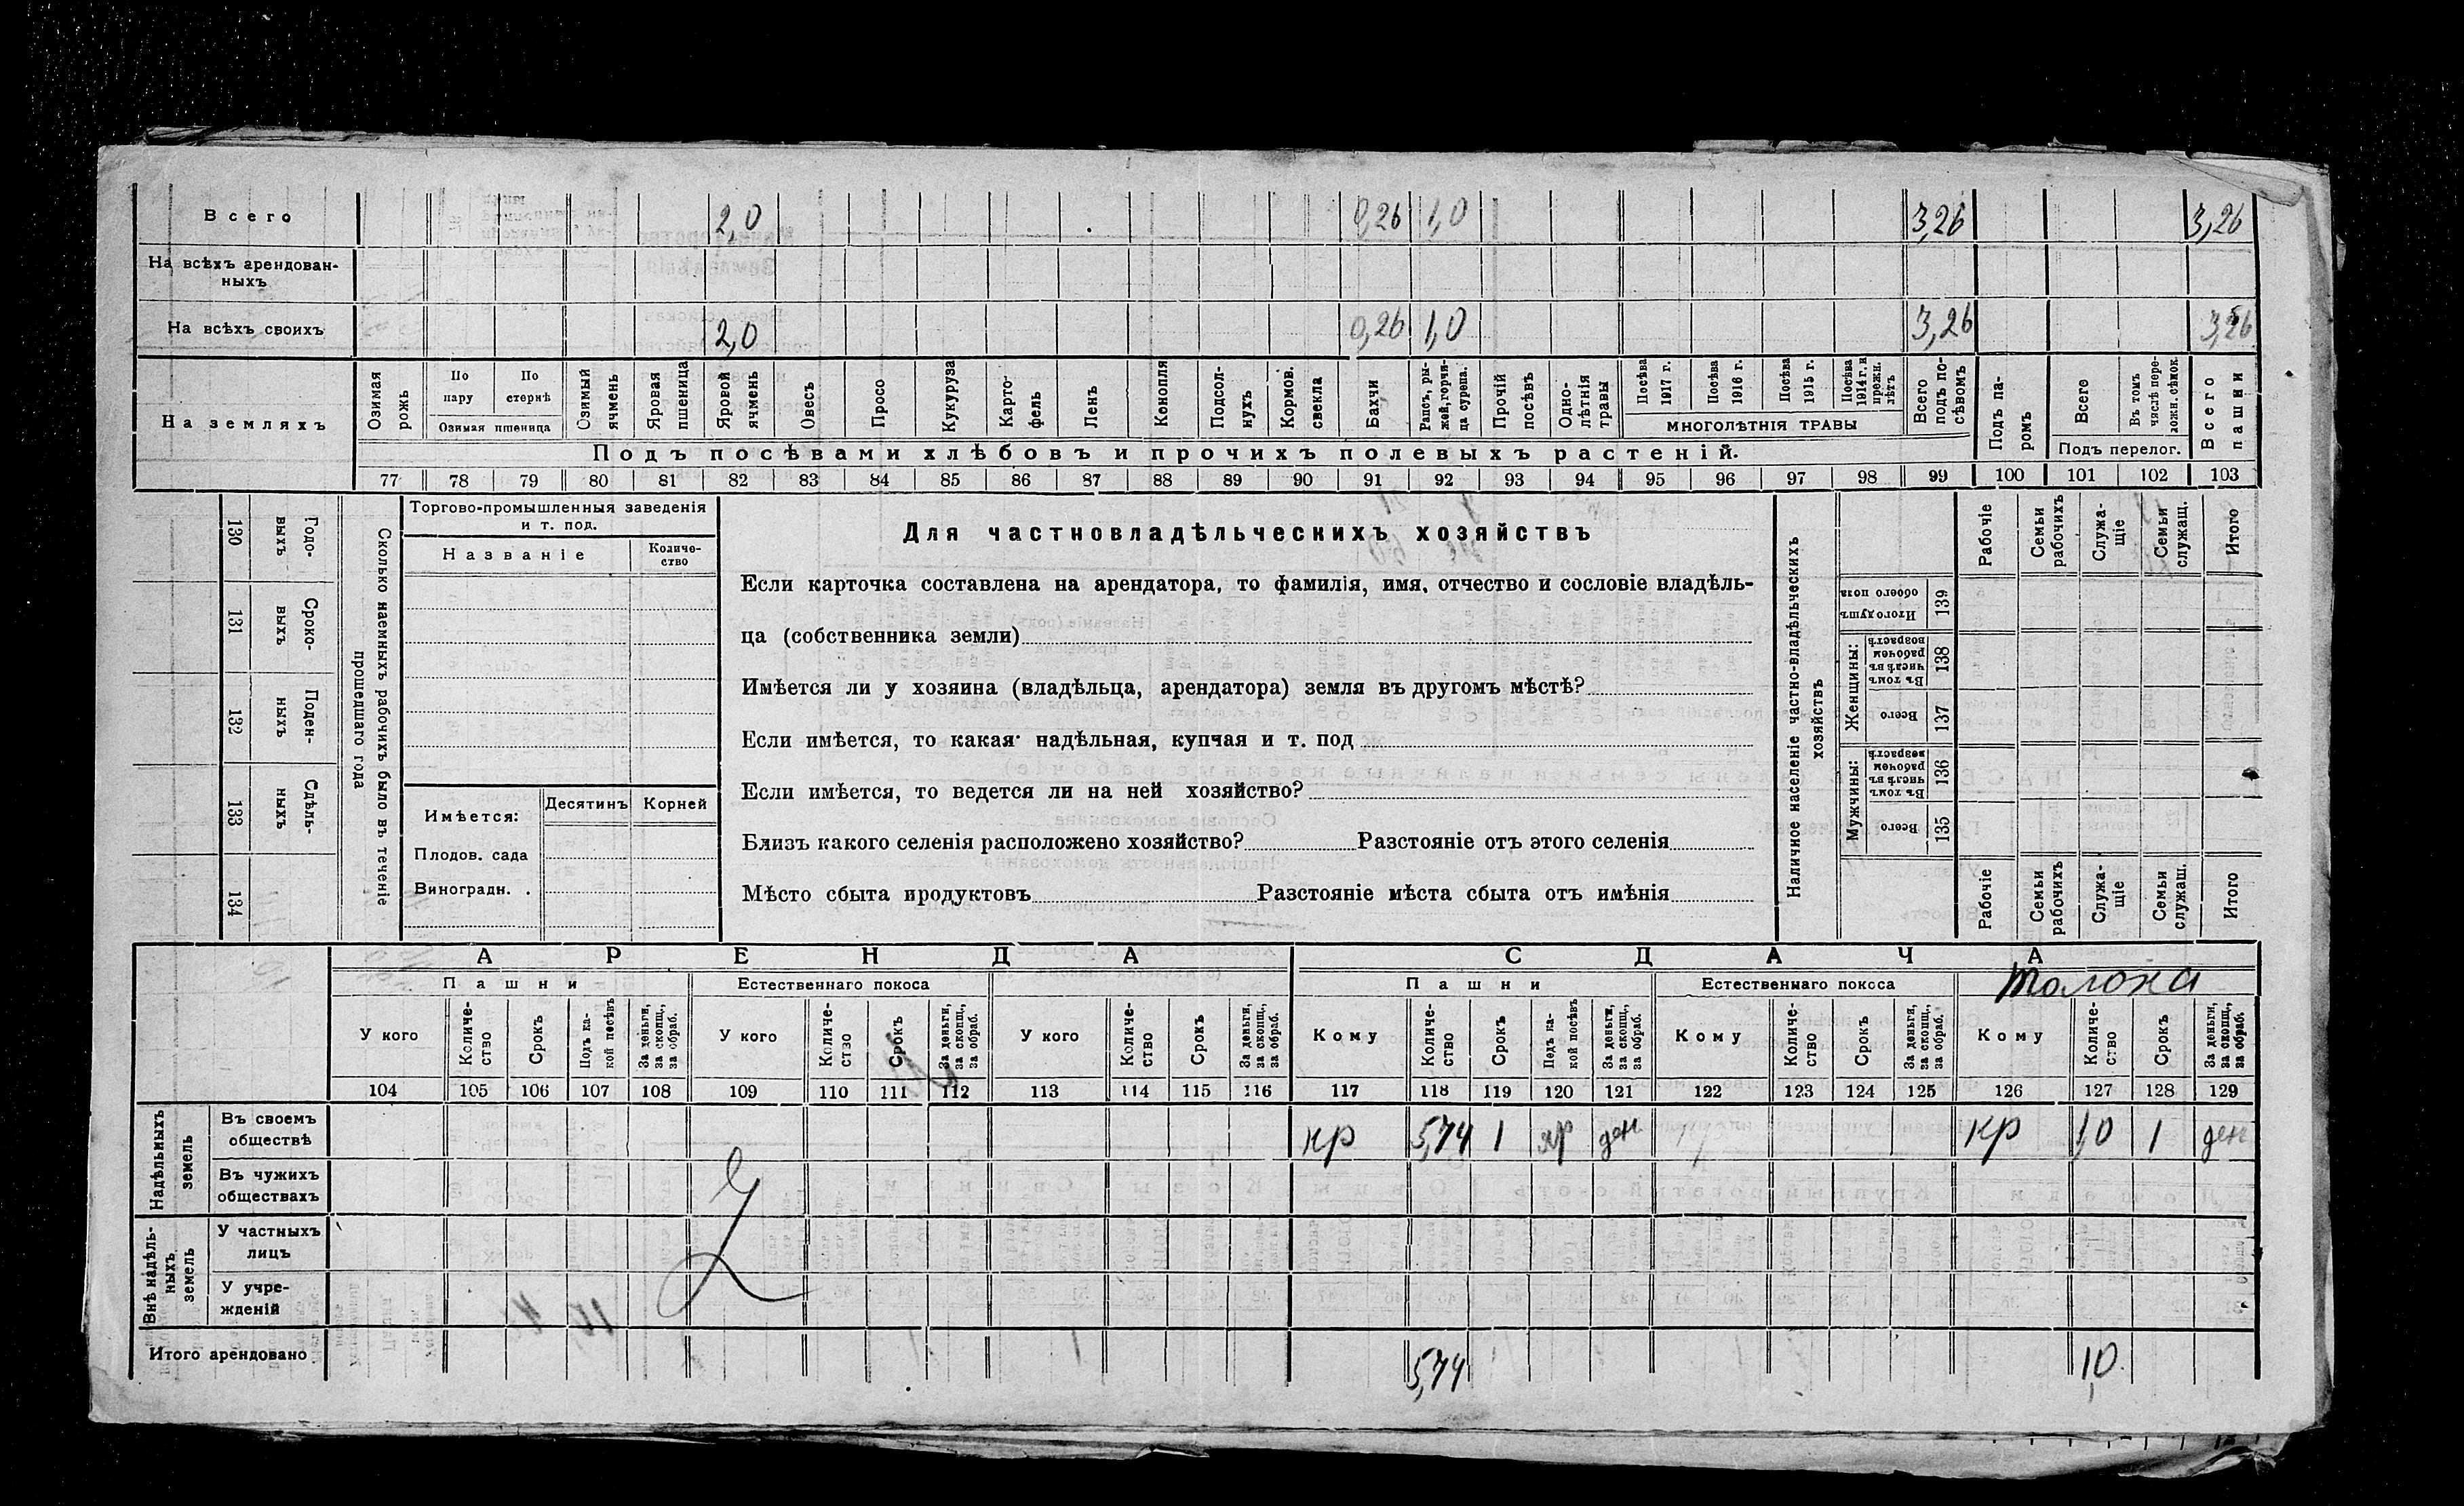 Всего 2,0 0,26 1,0 3,26 3,26
На всѣхъ арендован-
ныхъ
На всѣхъ своихъ 2,0 0,26 1,0 3,26 3,26
На земляхъ
Озимая рожь
По пару
По стернѣ
Озимая пшеница
Озимый ячмень
Яровая пшеница
Яровой ячмень
Овесъ
Просо
Кукуруза
Карто-
фель
Ленъ
Конопля
Подсол-
нухъ
Кормов.
свекла
Бахчи
Рапсъ, ры-
жей, горчи-
ца сурепа.
Прочій посѣвъ
Одно-
лѣтнія травы
Посѣва 1917 г.
Посѣва 1916 г.
Посѣва 1915 г.
Посѣва 1914 г. и прежн. лѣтъ
МНОГОЛѢТНІЯ ТРАВЫ
Всего подъ по-
сѣвомъ
Подъ па-
ромъ
Всего
Въ томъ числѣ пере-
ложн. сѣнок.
Подъ перелог.
Всего пашни
Подъ посѣвами хлѣбовъ и прочихъ полевыхъ растеній.
77 78 79 80 81 82 83 84 85 86 87 88 89 90 91 92 93 94 95 96 97 98 99 100 101 102 103
130 Годо-
выхъ
131 Сроко-
выхъ
132 Поден-
ныхъ
133 Сдѣль-
ныхъ
134
Сколько наемныхъ рабочихъ было въ теченіе
прошедшаго года
Торгово-промышленныя заведенія
и т. под.
Названіе
Количе-
ство
Имѣется:
Десятинъ
Корней
Плодов. сада
Виноградн. .
Для частновладѣльческихъ хозяйствъ
Если карточка составлена на арендатора, то фамилія, имя, отчество и сословіе владѣль-
ца (собственника земли)
Имѣется ли у хозяина (владѣльца, арендатора) земля въ другомъ мѣстѣ?
Если имѣется, то какая: надѣльная, купчая и т. под
Если имѣется, то ведется ли на ней хозяйство?
Близъ какого селенія расположено хозяйство? Разстояніе отъ этого селенія
Мѣсто сбыта продуктовъ Разстояніе мѣста сбыта отъ имѣнія
Наличное населеніе частно-владѣльческихъ
хозяйствъ
Рабочіе
Семьи рабочихъ
Служа-
щіе
Семьи служащ.
Итого
Итого душъ обоего пола 139
Женщины:
Въ томъ числѣ въ рабочемъ возрастѣ 138
Всего 137
Мужчины:
Въ томъ числѣ въ рабочемъ возрастѣ 136
Всего 135
Рабочіе
Семьи рабочихъ
Служа-
щіе
Семьи служащ.
Итого
АРЕНДА
СДАЧА
Пашни
Естественнаго покоса
Пашни
Естественнаго покоса
толока
У кого
Количе-
ство
Срокъ
Подъ ка-
кой посѣвъ
За деньги, за скопщ., за обраб.
У кого
Количе-
ство
Срокъ
За деньги, за скопщ., за обраб.
У кого
Количе-
ство
Срокъ
За деньги, за скопщ., за обраб.
Кому
Количе-
ство
Срокъ
Подъ ка-
кой посѣвъ
За деньги, за скопщ., за обраб.
Кому
Количе-
ство
Срокъ
За деньги, за скопщ., за обраб.
Кому
Количе-
ство
Срокъ
За деньги, за скопщ., за обраб.
104 105 106 107 108 109 110 111 112 113 114 115 116 117 118 119 120 121 122 123 124 125 126 127 128 129
Надѣльныхъ
земель
Въ своемъ
обществѣ
кр 5,74 1 яр ден кр 1,0 1 ден
Въ чужихъ
обществахъ
Внѣ надѣль-
ныхъ
земель
У частныхъ
лицъ
У учре-
жденій
Итого арендовано 5,74 1,0